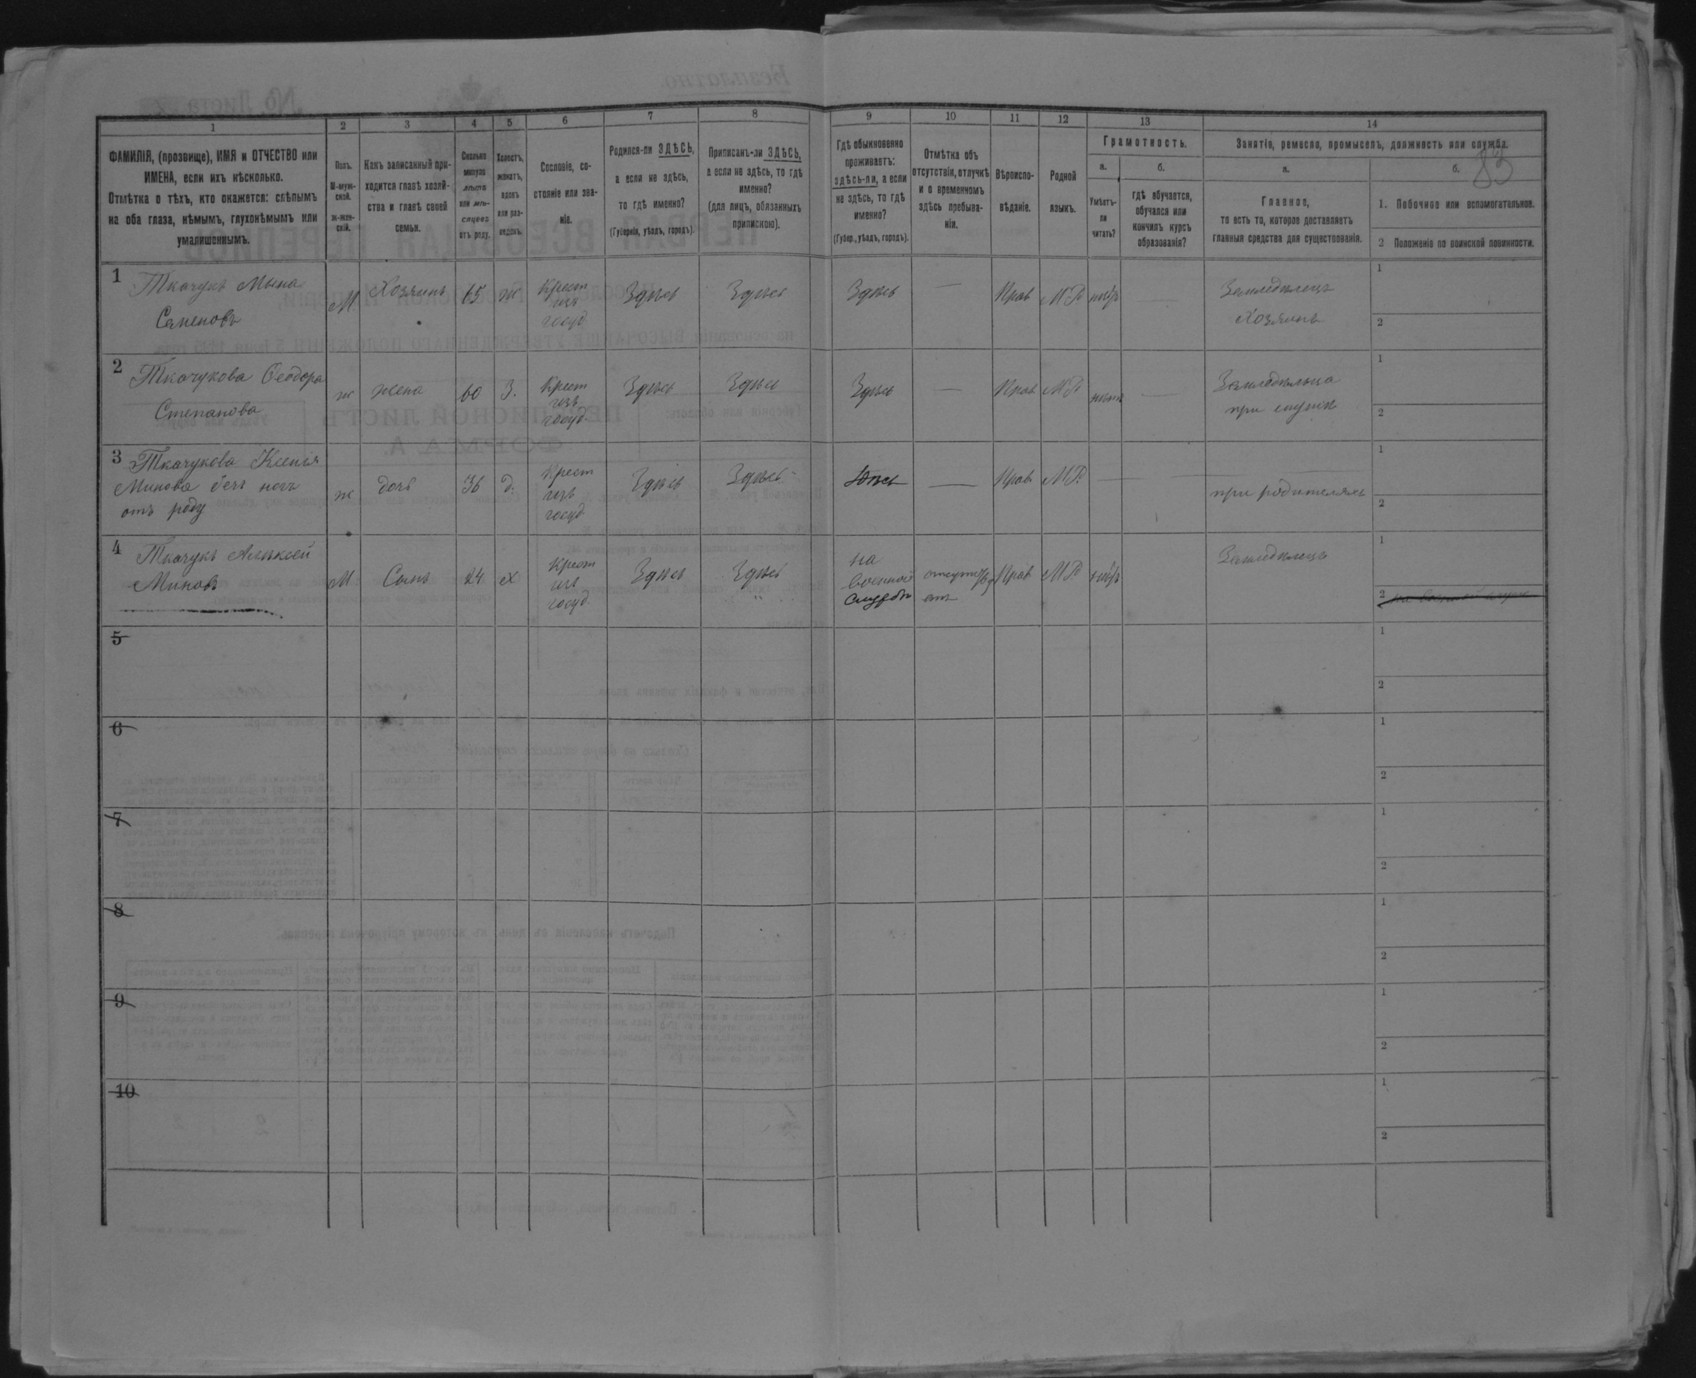 83
1 2 3 4 5 6 7 8 9 10 11 12 13 14
ФАМИЛІЯ, (прозвище), ИМЯ и ОТЧЕСТВО или
ИМЕНА, если ихъ нѣсколько.
Отмѣтка о тѣхъ, кто окажется: слѣпымъ
на оба глаза, нѣмымъ, глухонѣмымъ или
умалишеннымъ.
Полъ.
М-муж-
ской.
ж-жен-
скій.
Какъ записанный при-
ходится главѣ хозяй-
ства и главѣ своей
семьи.
Сколько
минуло
лѣтъ
или мѣ-
сяцевъ
отъ роду.
Холостъ,
женатъ,
вдовъ
или раз-
веденъ.
Сословіе, со-
стояніе или зва-
ніе.
Родился-ли ЗДѢСЬ,
а если не здѣсь,
то гдѣ именно?
(Губернія, уѣздъ, городъ).
Приписанъ-ли ЗДѢСЬ,
а если не здѣсь, то гдѣ
именно?
(для лицъ, обязанныхъ
припискою).
Гдѣ обыкновенно
проживаетъ:
здѣсь-ли, а если
не здѣсь, то гдѣ
именно?
(Губер., уѣздъ, городъ).
Отмѣтка объ
отсутствіи, отлучкѣ
и о временномъ
здѣсь пребыва-
ніи.
Вѣроиспо-
вѣданіе.
Родной
языкъ.
Грамотность.
а.
Умѣетъ-
ли
читать?
б.
гдѣ обучается,
обучался или
кончилъ курсъ
образованія?
Занятіе, ремесло, промыселъ, должность или служба.
а.
Главное,
то есть то, которое доставляетъ
главныя средства для существованія.
б.
1. Побочное или вспомогательное.
2 Положеніе по воинской повинности.
1 Ткачукъ Мина
Семеновъ
М Хозяинъ 65 ж
Крест
изъ
госуд
Здѣсь Здѣсь Здѣсь — Прав МР —
Земледѣлецъ
Хозяинъ
1
2
2 Ткачукова Ѳеодора
Степанова
ж жена 60 З.
Крест
изъ
госуд
Здѣсь Здѣсь Здѣсь — Прав МР —
при мужѣ
1
2
3 Ткачукова Ксенія
Минова безъ ногъ
отъ роду
ж дочь 36 д.
Крест
изъ
госуд
Здѣсь Здѣсь Здѣсь — Прав МР — —
при родителяхъ
1
2
4 Ткачукъ Алексѣй
Миновъ
М Сынъ 24 Х
Крест
изъ
госуд
Здѣсь Здѣсь
на
военной
службѣ
Прав МР
Земледѣлецъ
1
2 на военной служ
5
1
2
6
1
2
7
1
2
8
1
2
9
1
2
10
1
2